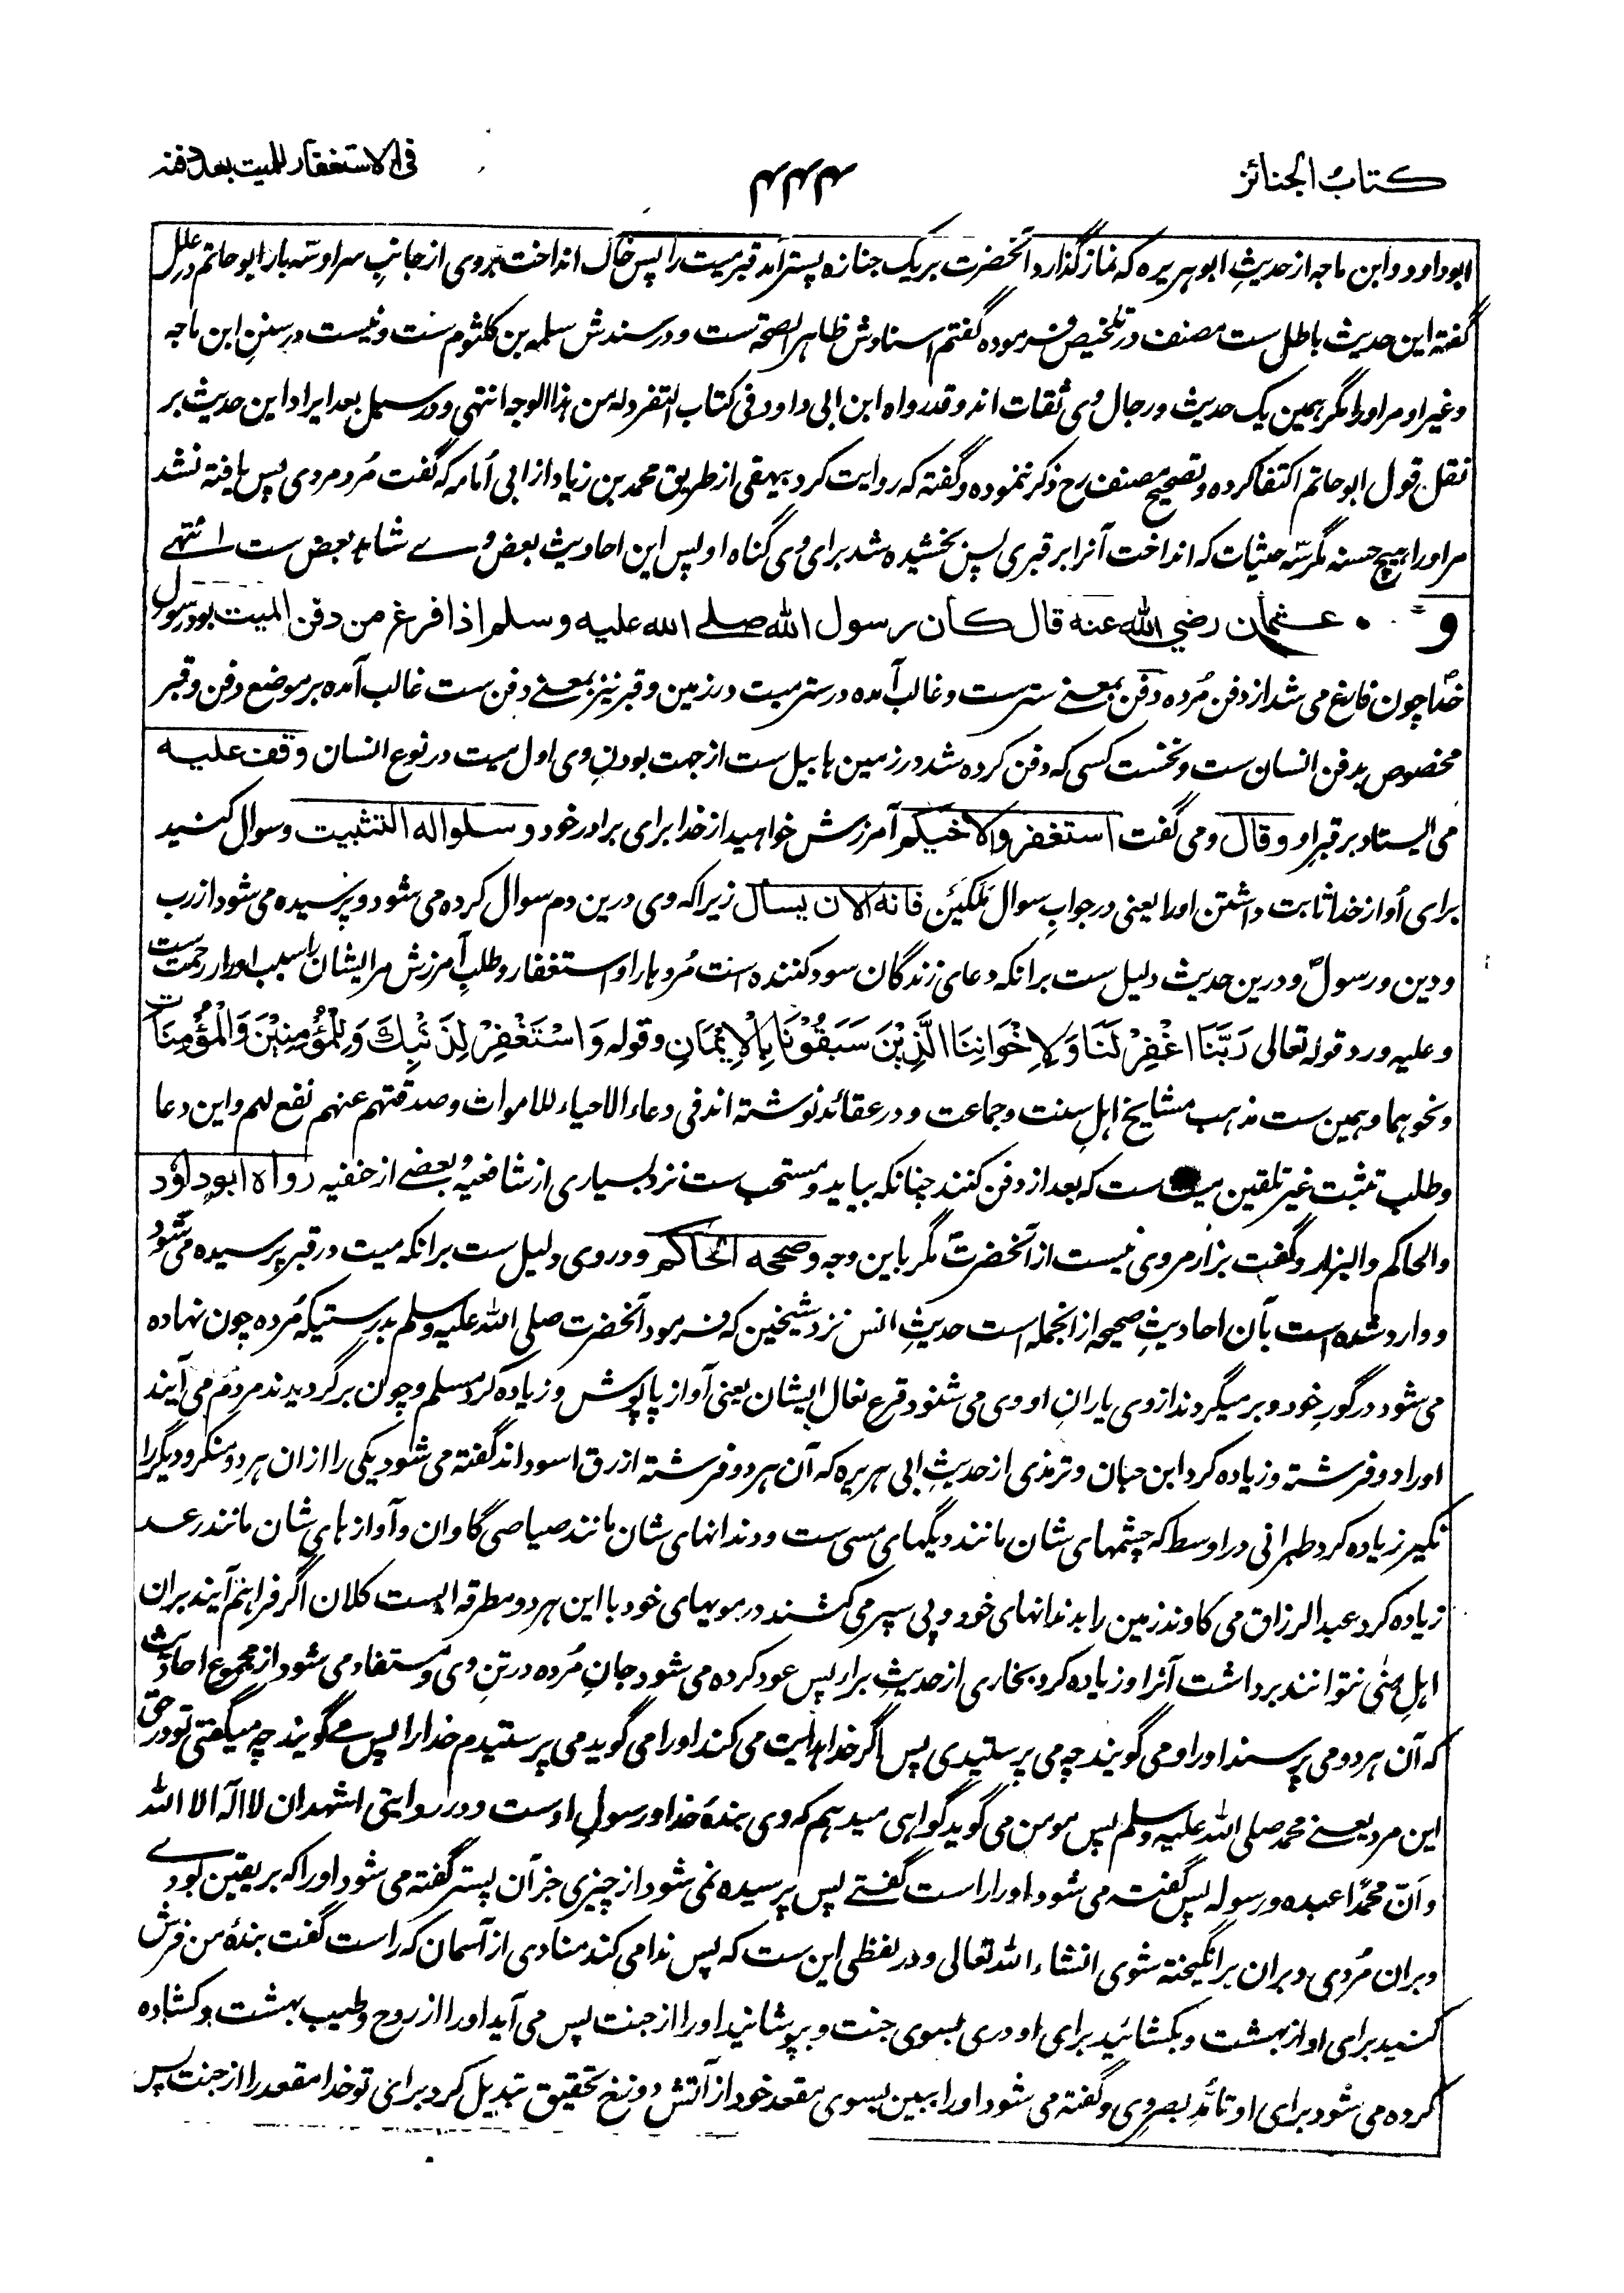 كتاب الجنائز
۴۴۴
فى الاستغفار للميت بعد دفنه
ابوداود و ابن ماجه از حدیثِ ابوهریره که نماز گذارد آنحضرت بر یک جنازه پستر آمد قبر میت را پس خاک انداخت بروی از جانبِ سر او سه بار ابوحاتم در علل
گفته این حدیث باطل ست مصنف در تلخیص فرموده گفتم اسنادش ظاهر الصحة ست و در سندش سلمه بن کلثوم ست و نیست در سننِ ابن ماجه
و غیر او مر او را مگر همین یک حدیث و رجال وی ثقات اند و قد رواه ابن ابی داود فی کتاب التفرد له من هذا الوجه انتهی و در سبل بعد ایراد این حدیث بر
نقل قول ابوحاتم اکتفا کرده و تصحیح مصنف رح ذکر ننموده و گفته که روایت کرد بیهقی از طریق محمد بن زیاد از ابی اُمامه که گفت مُرد مردی پس یافته نشد
مر او را هیچ حسنه مگر سه حثیات که انداخت آنرا بر قبری پس بخشیده شد برای وی گناه او پس این احادیث بعض وے شاهد بعض ست انتهے
و عثمان رضي الله عنه قال كان رسول الله صلے الله عليه وسلم اذا فرغ من دفن الميت بود رسول
خدا چون فارغ می شد از دفن مُرده دفن بمعنے ستر ست و غالب آمده در ستر میت در زمین و قبر نیز بمعنے دفن ست غالب آمده بر موضع دفن و قبر
مخصوص بدفن انسان ست و نخست کسی که دفن کرده شد در زمین هابیل ست از جهت بودنِ وی اول میت در نوع انسان وقف عليه
می ایستاد بر قبر او وقال و می گفت استغفروا لاخيكم آمرزش خواهید از خدا برای برادر خود وسلوا له التثبيت و سوال کنید
برای اُو از خدا ثابت داشتن او را یعنی در جوابِ سوال مَلَکَین فانه الان يسأل زیراکه وی درین دم سوال کرده می شود و پرسیده می شود از رب
و دین و رسول و درین حدیث دلیل ست برانکه دعای زندگان سود کننده است مُرده را و استغفار و طلبِ آمرزش مر ایشان را سبب اورار رحمت ست
و علیه ورد قوله تعالی رَبَّنَا اغْفِرْ لَنَا وَلِاِخْوَانِنَا الَّذِيْنَ سَبَقُوْنَا بِالْاِيْمَانِ و قوله وَاسْتَغْفِرْ لِذَنْبِكَ وَلِلْمُؤْمِنِيْنَ وَالْمُؤْمِنَاتِ
و نحوهما و همین ست مذهب مشایخ اهلِ سنت و جماعت و در عقائد نوشته اند فی دعاء الاحیاء للاموات و صدقتهم عنهم نفع لهم و این دعا
و طلب تثبت غیر تلقین میت ست که بعد از دفن کنند چنانکه بیاید و مستحب ست نزد بسیاری از شافعیه و بعضے از حنفیه رواه ابوداود
والحاکم والبزار و گفت بزار مروی نیست از آنحضرت مگر باین وجه وصححه الحاكم و در وی دلیل ست برانکه میت در قبر پرسیده می شود
و وارد شده است بآن احادیثِ صحیحه از انجمله است حدیثِ انس نزد شیخین که فرمود آنحضرت صلی الله علیه وسلم بدرستیکه مُرده چون نهاده
می شود در گورِ خود و بر میگردند از وی یارانِ او وی می شنود قرع نعال ایشان یعنی آواز پاپوش و زیاده کرد مسلم و چون برگردیدند مردم می آیند
او را دو فرشته و زیاده کرد ابن حبان و ترمذی از حدیثِ ابی هریره که آن هر دو فرشته ازرق اسود اند گفته می شود یکی را ازان هر دو منکر و دیگر را
نکیر زیاده کرد طبرانی در اوسط که چشمهای شان مانند دیگهای مسی ست و دندانهای شان مانند صیاصی گاوان و آوازهای شان مانند رعد
زیاده کرد عبد الرزاق می کاوند زمین را بدندانهای خود و پی سپر می کشند در مویهای خود با این هر دو مطرقه ایست کلان اگر فراهم آیند بران
اهلِ منٰی نتوانند برداشت آنرا و زیاده کرد بخاری از حدیثِ برار پس عود کرده می شود جانِ مُرده در تنِ وی و مستفاد می شود از مجموع احادیث
که آن هر دو می پرسند او را و می گویند چه می پرستیدی پس اگر خدا هدایت می کند او را می گوید می پرستیدم خدا را پس مے گویند چه میگفتی تو در حق
این مرد یعنے محمد صلی الله علیه وسلم پس مومن می گوید گواهی میدهم که وی بندهٔ خدا و رسولِ اوست و در روایتی اشهد ان لا اله الا الله
و انّ محمدًا عبده و رسوله پس گفته می شود او را راست گفتے پس پرسیده نمی شود از چیزی جز آن پستر گفته می شود او را که بر یقین بودے
و بران مُردی و بران برانگیخته شوی انشاء الله تعالی و در لفظی این ست که پس ندا می کند منادی از آسمان که راست گفت بندهٔ من فرش
کنید برای او از بهشت و بکشائید برای او دری بسوی جنت و بپوشانید او را از جنت پس می آید او را از روح و طیب بهشت و کشاده
کرده می شود برای او تا مدِّ بصرِ وی و گفته می شود او را ببین بسوی مقعد خود از آتش دوزخ بتحقیق تبدیل کرد برای تو خدا مقعد را از جنت پس